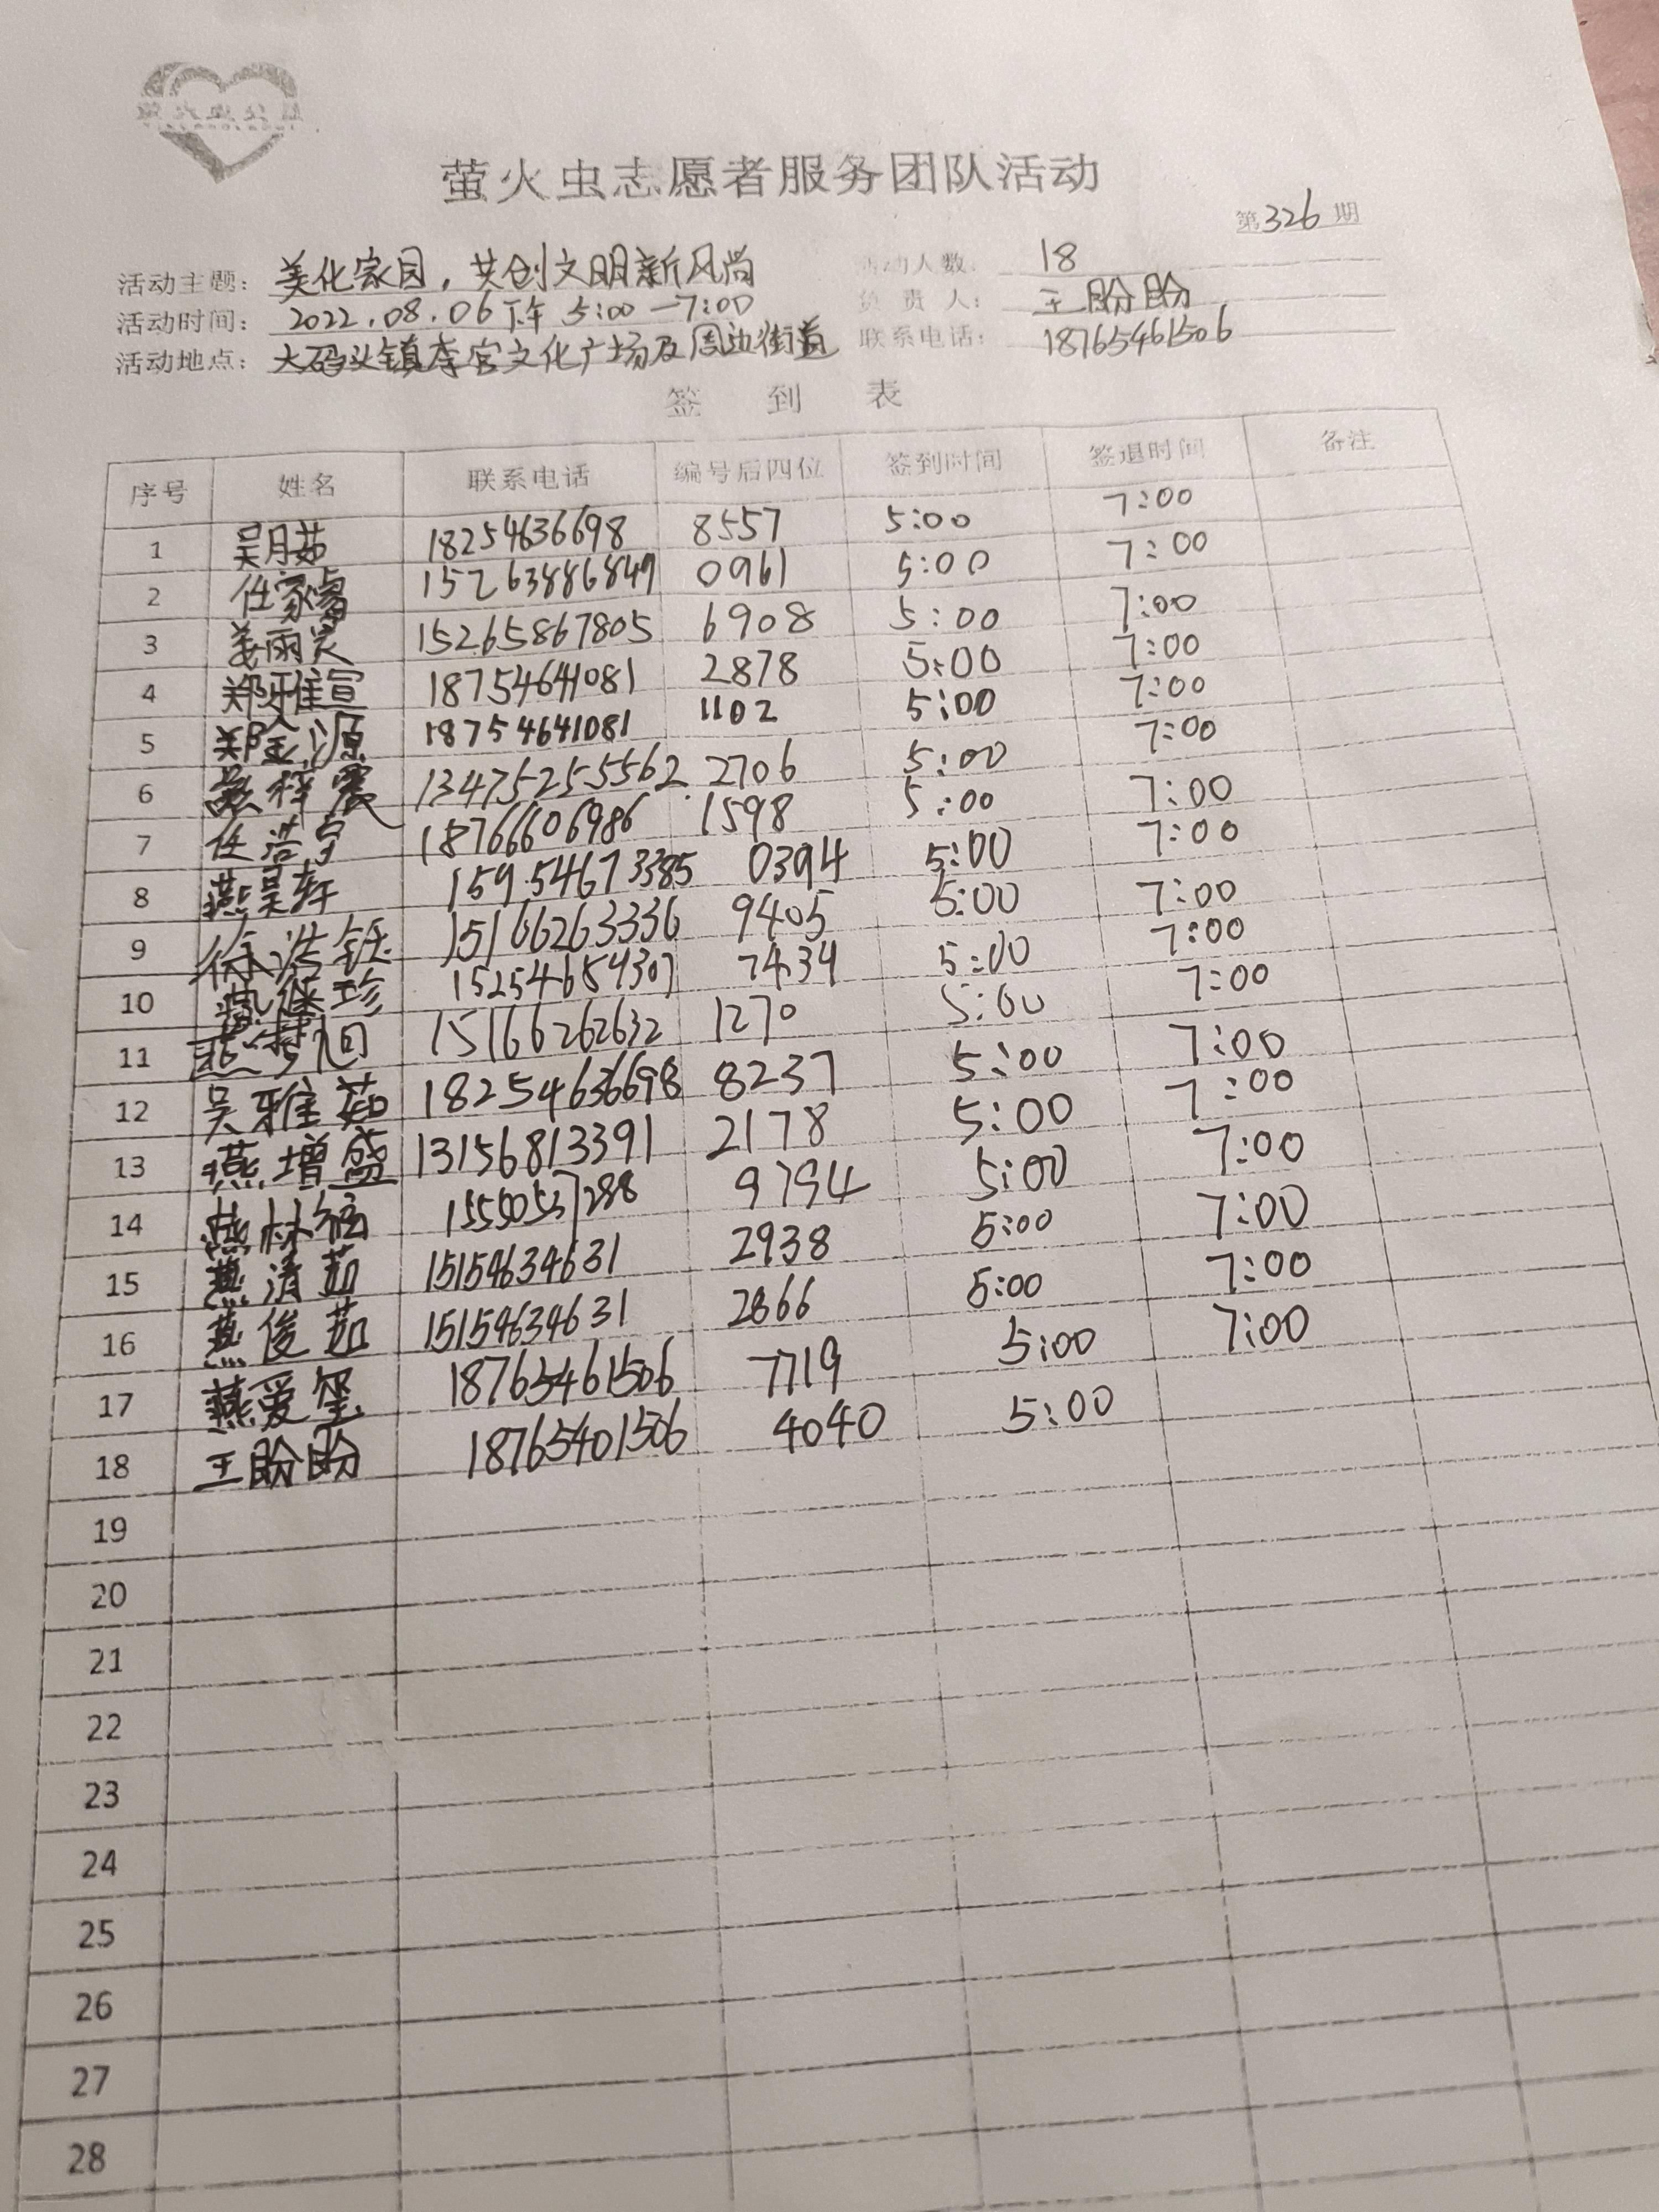 萤火虫志愿者服务团队活动
第326期
活动主题：美化家园，共创文明新风尚 活动人数：18
活动时间：2022.08.06下午 5:00—7:00 负责人：王盼盼
活动地点：大码头镇李官文化广场及周边街道 联系电话：18765461506
签到表
序号 姓名 联系电话 编号后四位 签到时间 签退时间 备注
1 吴月茹 18254636698 8557 5:00 7:00
2 任家睿 15263886849 0961 5:00 7:00
3 姜雨昊 15265867805 6908 5:00 7:00
4 郑雅宣 18754641081 2878 5:00 7:00
5 郑金源 18754641081 1102 5:00 7:00
6 燕梓震 13475255562 2706 5:00 7:00
7 任浩宇 18766606986 1598 5:00 7:00
8 燕昊轩 15954673385 0394 5:00 7:00
9 徐浩钰 15166263336 9405 5:00 7:00
10 珍 15254684307 7434 5:00 7:00
11 15166262632 1270 5:00 7:00
12 吴雅茹 18254636698 8237 5:00 7:00
13 燕增盛 13156813391 2178 5:00 7:00
14 燕林 15550537288 9794 5:00 7:00
15 燕清茹 15154634631 2938 5:00 7:00
16 燕俊茹 15154634631 2866 5:00 7:00
17 燕爱玺 18765461506 7719 5:00 7:00
18 王盼盼 18765401506 4040 5:00
19
20
21
22
23
24
25
26
27
28